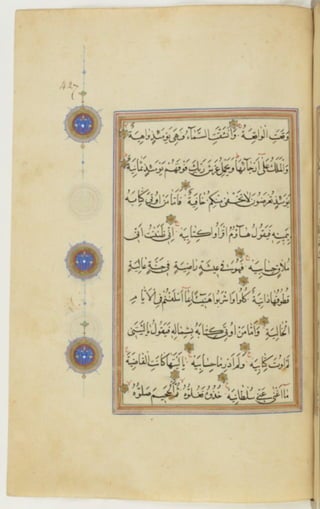 427
وَقَعَتِ الْوَاقِعَةُ وَانْشَقَّتِ السَّمَآءُ فَهِيَ يَوْمَئِذٍ وَاهِيَةٌ
وَالْمَلَكُ عَلَى اَرْجَآئِهَا وَيَحْمِلُ عَرْشَ رَبِّكَ فَوْقَهُمْ يَوْمَئِذٍ ثَمَانِيَةٌ
يَوْمَئِذٍ تُعْرَضُونَ لَا تَخْفَى مِنْكُمْ خَافِيَةٌ فَاَمَّا مَنْ اُوتِيَ كِتَابَهُ
بِيَمِينِهِ فَيَقُولُ هَآؤُمُ اقْرَؤُا كِتَابِيَهْ اِنِّي ظَنَنْتُ اَنِّي
مُلَاقٍ حِسَابِيَهْ فَهُوَ فِي عِيشَةٍ رَاضِيَةٍ فِي جَنَّةٍ عَالِيَةٍ
قُطُوفُهَا دَانِيَةٌ كُلُوا وَاشْرَبُوا هَنِيئًا بِمَآ اَسْلَفْتُمْ فِي الْاَيَّامِ
الْخَالِيَةِ وَاَمَّا مَنْ اُوتِيَ كِتَابَهُ بِشِمَالِهِ فَيَقُولُ يَا لَيْتَنِي
لَمْ اُوتَ كِتَابِيَهْ وَلَمْ اَدْرِ مَا حِسَابِيَهْ يَا لَيْتَهَا كَانَتِ الْقَاضِيَةَ
مَآ اَغْنَى عَنِّي سُلْطَانِيَهْ خُذُوهُ فَغُلُّوهُ ثُمَّ الْجَحِيمَ صَلُّوهُ